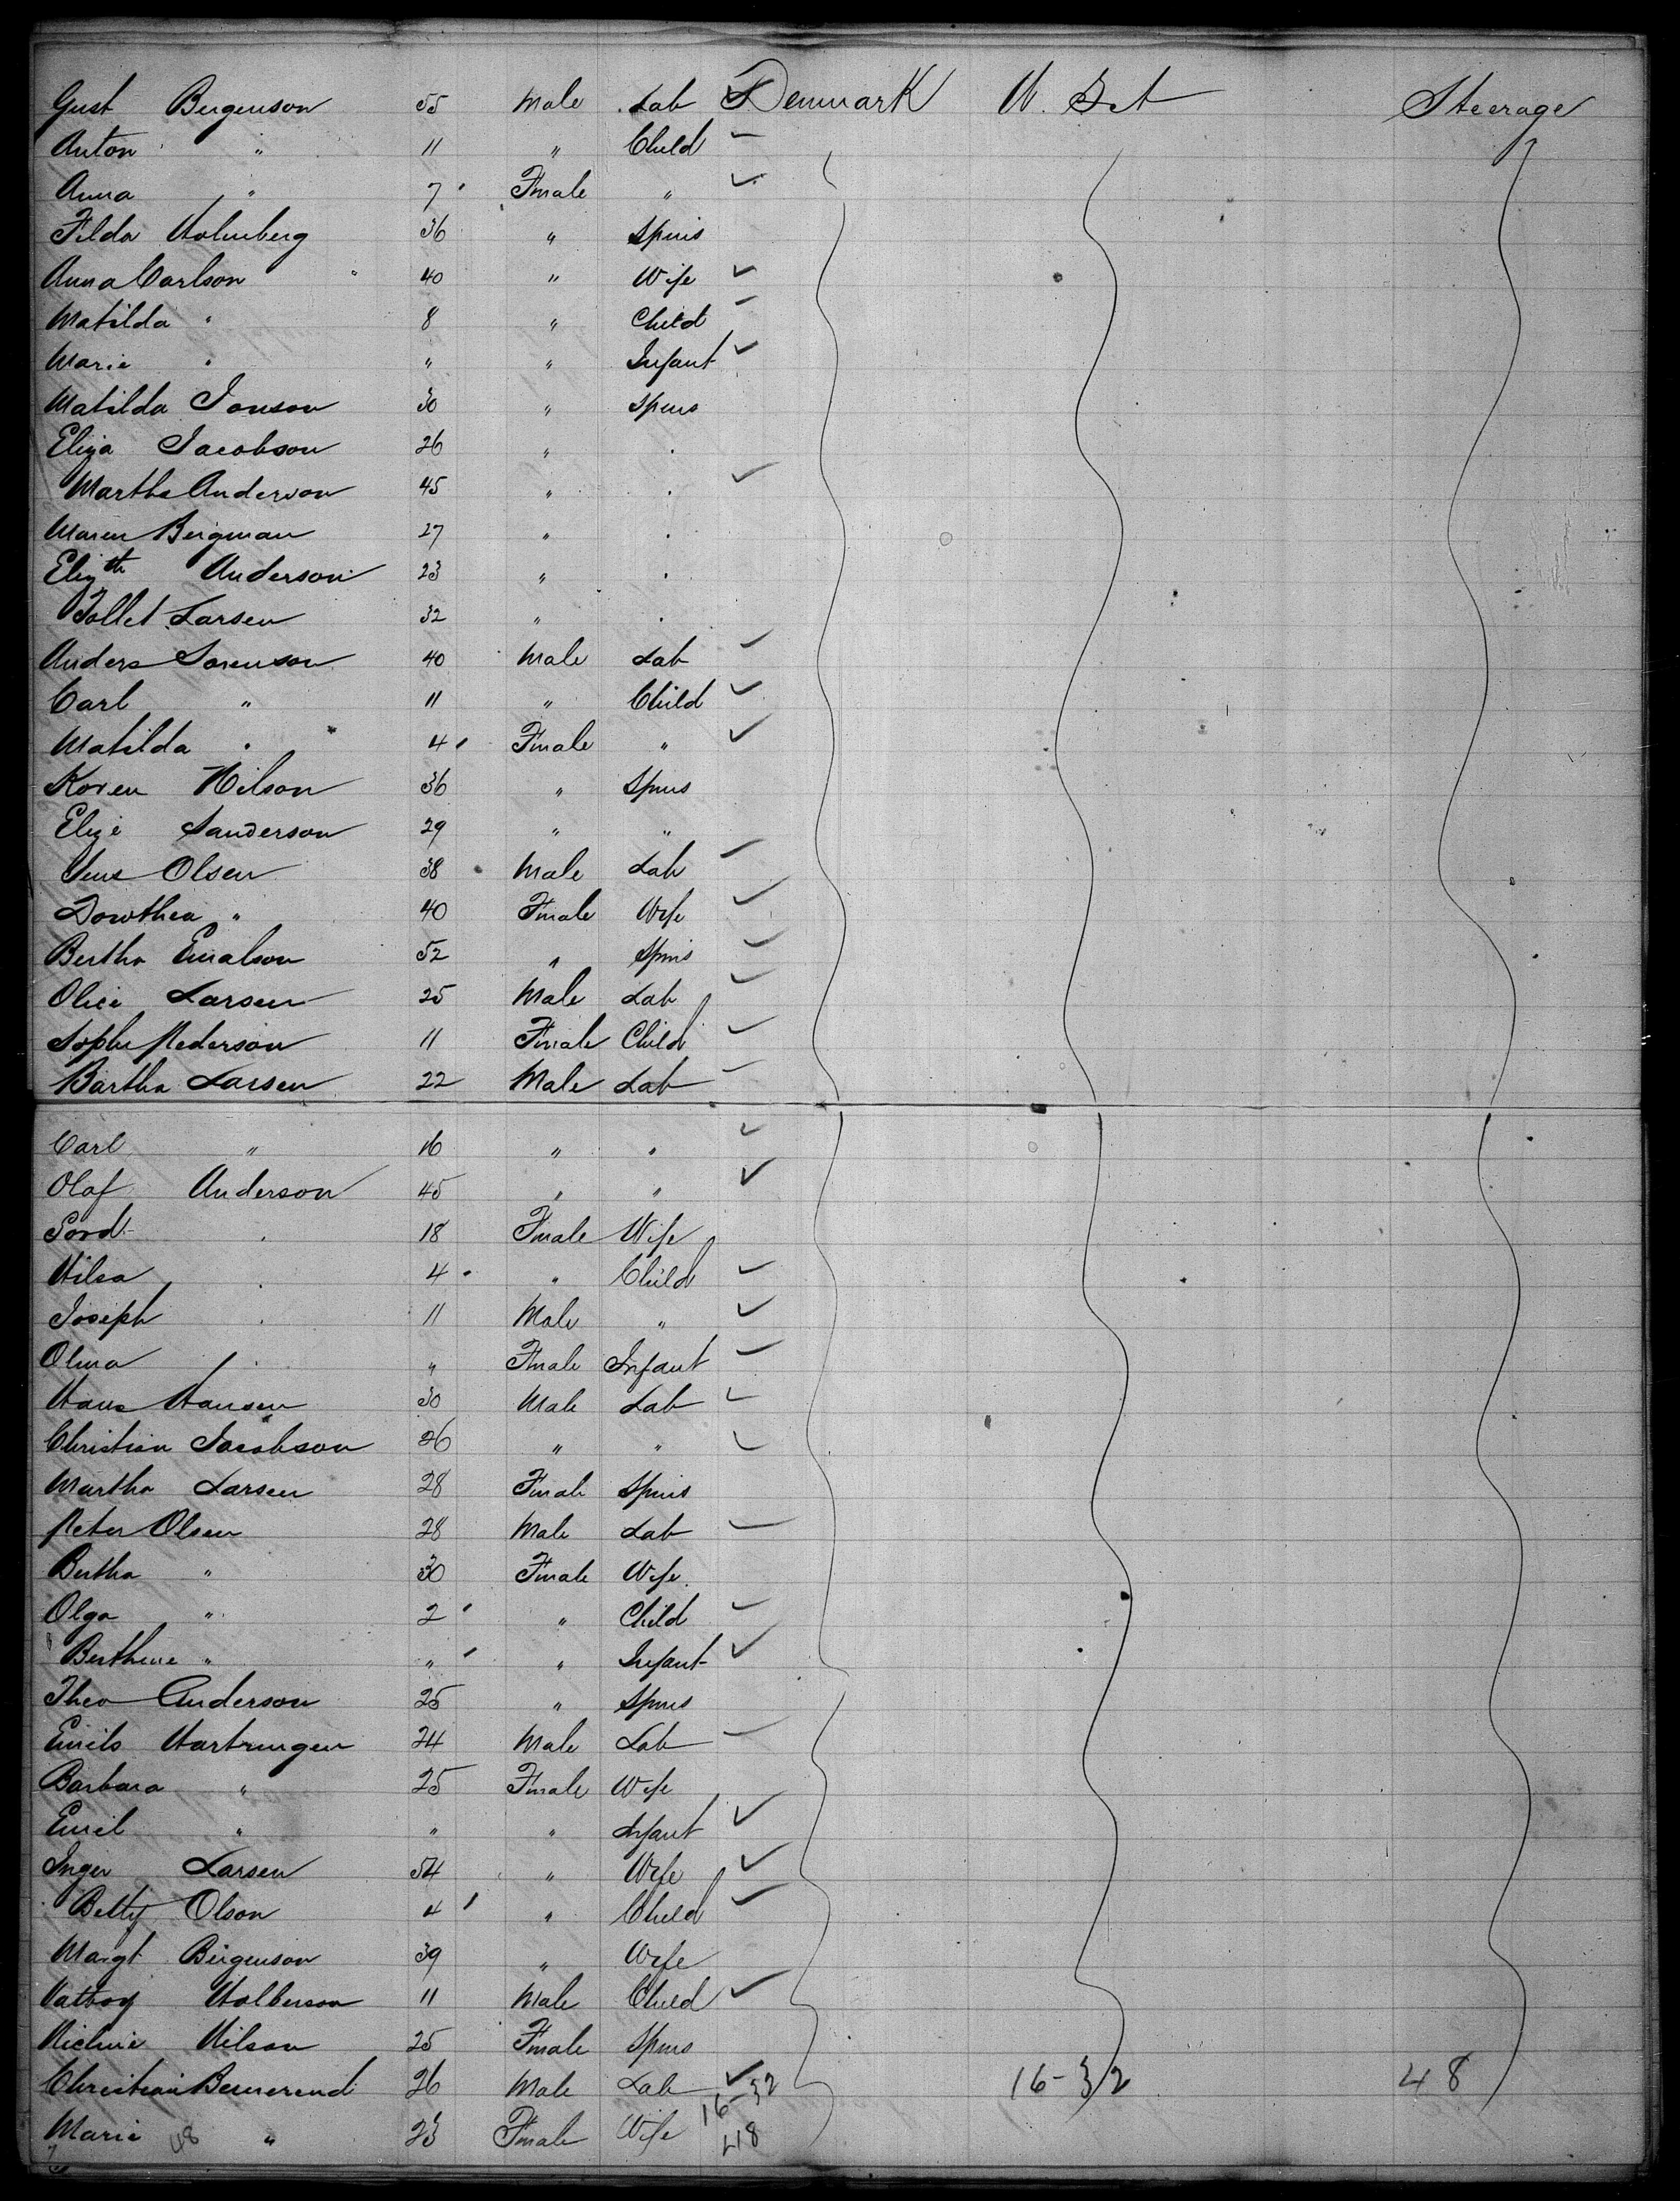 Gust Bergenson 55 Male Lab Denmark U. St Steerage
Anton " 11 " Child
Anna " 7 Fmale "
Filda Holmberg 36 " Spins
Anna Carlson 40 " Wife
Matilda " 8 " Child
Marie " " " Infant
Matilda Jonson 30 " Spins
Eliza Jacobson 26 " "
Martha Anderson 45 " "
Maren Bergman 27 " "
Elizth Anderson 23 " "
Tollet Larsen 32 " "
Anders Sorenson 40 Male Lab
Carl " 11 " Child
Matilda " 4 Fmale "
Koren Nilson 36 " Spins
Elize Sanderson 29 " "
Jens Olsen 38 Male Lab
Dorothea " 40 Fmale Wife
Bertha Emalson 52 " Spins
Olive Larsen 25 Male Lab
Sophe Pederson 11 Fmale Child
Bartha Larsen 22 Male Lab
Carl " 16 " "
Olaf Anderson 45 " "
Sord " 18 Fmale Wife
Hilsa " 4 " Child
Joseph " 11 Male "
Olma " " Fmale Infant
Hans Hansen 30 Male Lab
Christian Jacobson 26 " "
Martha Larsen 28 Fmale Spins
Peter Olsen 28 Male Lab
Bertha " 30 Fmale Wife
Olga " 2 " Child
Berthine " " " Infant
Theo Anderson 25 " Spins
Emils 24 Male Lab
Barbara " 25 Fmale Wife
Emil " " " Infant
Inger Larsen 54 " Wife
Betty Olson 4 " Child
Margt Bergenson 39 " Wife
Holberson 11 Male Child
Nilson 25 Fmale Spins
Christian 26 Male Lab 16-32 16-32 48
Marie 48 " 23 Fmale Wife 48